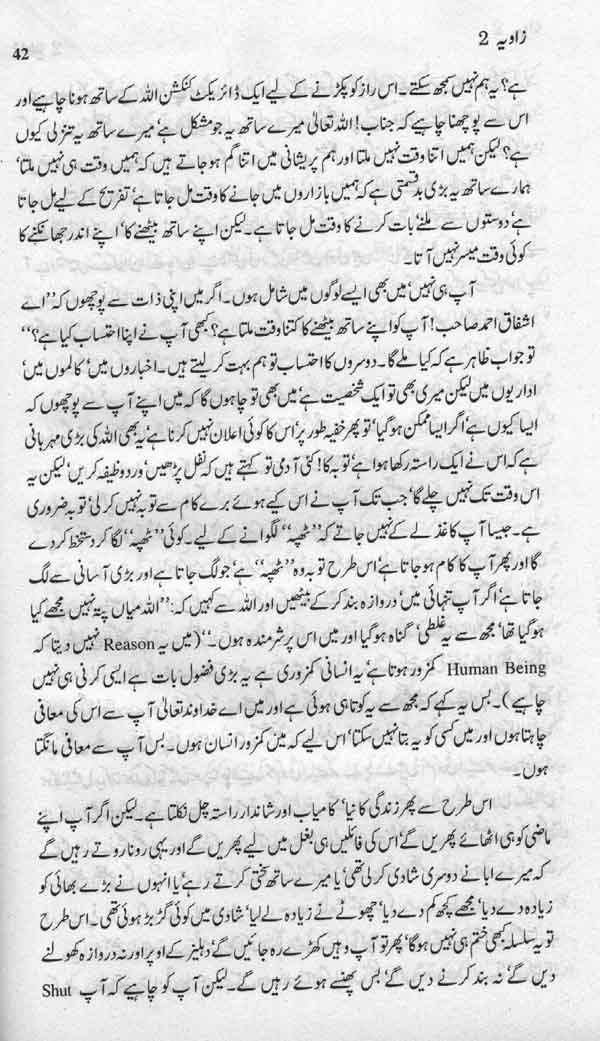 زاویہ 2
42
ہے؟ یہ ہم نہیں سمجھ سکتے۔ اس راز کو پکڑنے کے لیے ایک ڈائریکٹ کنکشن اللہ کے ساتھ ہونا چاہیے اور
اس سے پوچھنا چاہیے کہ جناب! اللہ تعالیٰ میرے ساتھ یہ جو مشکل ہے، میرے ساتھ یہ تنزلی کیوں
ہے؟ لیکن ہمیں اتنا وقت نہیں ملتا اور ہم پریشانی میں اتنا گم ہو جاتے ہیں کہ ہمیں وقت ہی نہیں ملتا،
ہمارے ساتھ یہ بڑی بدقسمتی ہے کہ ہمیں بازاروں میں جانے کا وقت مل جاتا ہے، تفریح کے لیے مل جاتا
ہے، دوستوں سے ملنے، بات کرنے کا وقت مل جاتا ہے۔ لیکن اپنے ساتھ بیٹھنے کا، اپنے اندر جھانکنے کا
کوئی وقت میسر نہیں آتا۔
آپ ہی نہیں، میں بھی ایسے لوگوں میں شامل ہوں۔ اگر میں اپنی ذات سے پوچھوں کہ ’’اے
اشفاق احمد صاحب! آپ کو اپنے ساتھ بیٹھنے کا کتنا وقت ملتا ہے؟ کبھی آپ نے اپنا احتساب کیا ہے؟‘‘
تو جواب ظاہر ہے کہ کیا ملے گا۔ دوسروں کا احتساب تو ہم بہت کر لیتے ہیں۔ اخباروں میں، کالموں میں،
اداریوں میں لیکن میری بھی تو ایک شخصیت ہے، میں بھی تو چاہوں گا کہ میں اپنے آپ سے پوچھوں کہ
ایسا کیوں ہے، اگر ایسا ممکن ہو گیا، تو پھر خفیہ طور پر، اس کا کوئی اعلان نہیں کرنا ہے، یہ بھی اللہ کی بڑی مہربانی
ہے کہ اس نے ایک راستہ رکھا ہوا ہے، توبہ کا! کئی آدمی تو کہتے ہیں کہ نفل پڑھیں، ورد وظیفہ کریں، لیکن یہ
اس وقت تک نہیں چلے گا، جب تک آپ نے اس کیے ہوئے برے کام سے توبہ نہیں کر لی، توبہ ضروری
ہے۔ جیسا آپ کاغذ لے کے نہیں جاتے کہ ’’ٹھپہ‘‘ لگوانے کے لیے۔ کوئی ’’ٹھپہ‘‘ لگا کر دستخط کر دے
گا اور پھر آپ کا کام ہو جاتا ہے، اس طرح توبہ وہ ’’ٹھپہ‘‘ ہے، جو لگ جاتا ہے اور بڑی آسانی سے لگ
جاتا ہے، اگر آپ تنہائی میں، دروازہ بند کر کے بیٹھیں اور اللہ سے کہیں کہ: ’’اللہ میاں پتہ نہیں مجھے کیا
ہو گیا تھا، مجھ سے یہ غلطی، گناہ ہو گیا اور میں اس پر شرمندہ ہوں۔‘‘ (میں یہ Reason نہیں دیتا کہ
Human Being کمزور ہوتا ہے، یہ انسانی کمزوری ہے یہ بڑی فضول بات ہے ایسی کرنی ہی نہیں
چاہیے)۔ بس یہ کہے کہ مجھ سے یہ کوتاہی ہوئی ہے اور میں اے خداوند تعالیٰ آپ سے اس کی معافی
چاہتا ہوں اور میں کسی کو یہ بتا نہیں سکتا، اس لیے کہ میں کمزور انسان ہوں۔ بس آپ سے معافی مانگتا
ہوں۔
اس طرح سے پھر زندگی کا نیا، کامیاب اور شاندار راستہ چل نکلتا ہے۔ لیکن اگر آپ اپنے
ماضی کو ہی اٹھائے پھریں گے، اس کی فائلیں ہی بغل میں لیے پھریں گے اور یہی رونا روتے رہیں گے
کہ میرے ابا نے دوسری شادی کر لی تھی، یا میرے ساتھ سختی کرتے رہے، یا انہوں نے بڑے بھائی کو
زیادہ دے دیا، مجھے کچھ کم دے دیا، چھوٹے نے زیادہ لے لیا، شادی میں کوئی گڑبڑ ہوئی تھی۔ اس طرح
تو یہ سلسلہ کبھی ختم ہی نہیں ہو گا، پھر تو آپ وہیں کھڑے رہ جائیں گے، دہلیز کے اوپر اور نہ دروازہ کھولنے
دیں گے، نہ بند کرنے دیں گے، بس پھنسے ہوئے رہیں گے۔ لیکن آپ کو چاہیے کہ آپ Shut